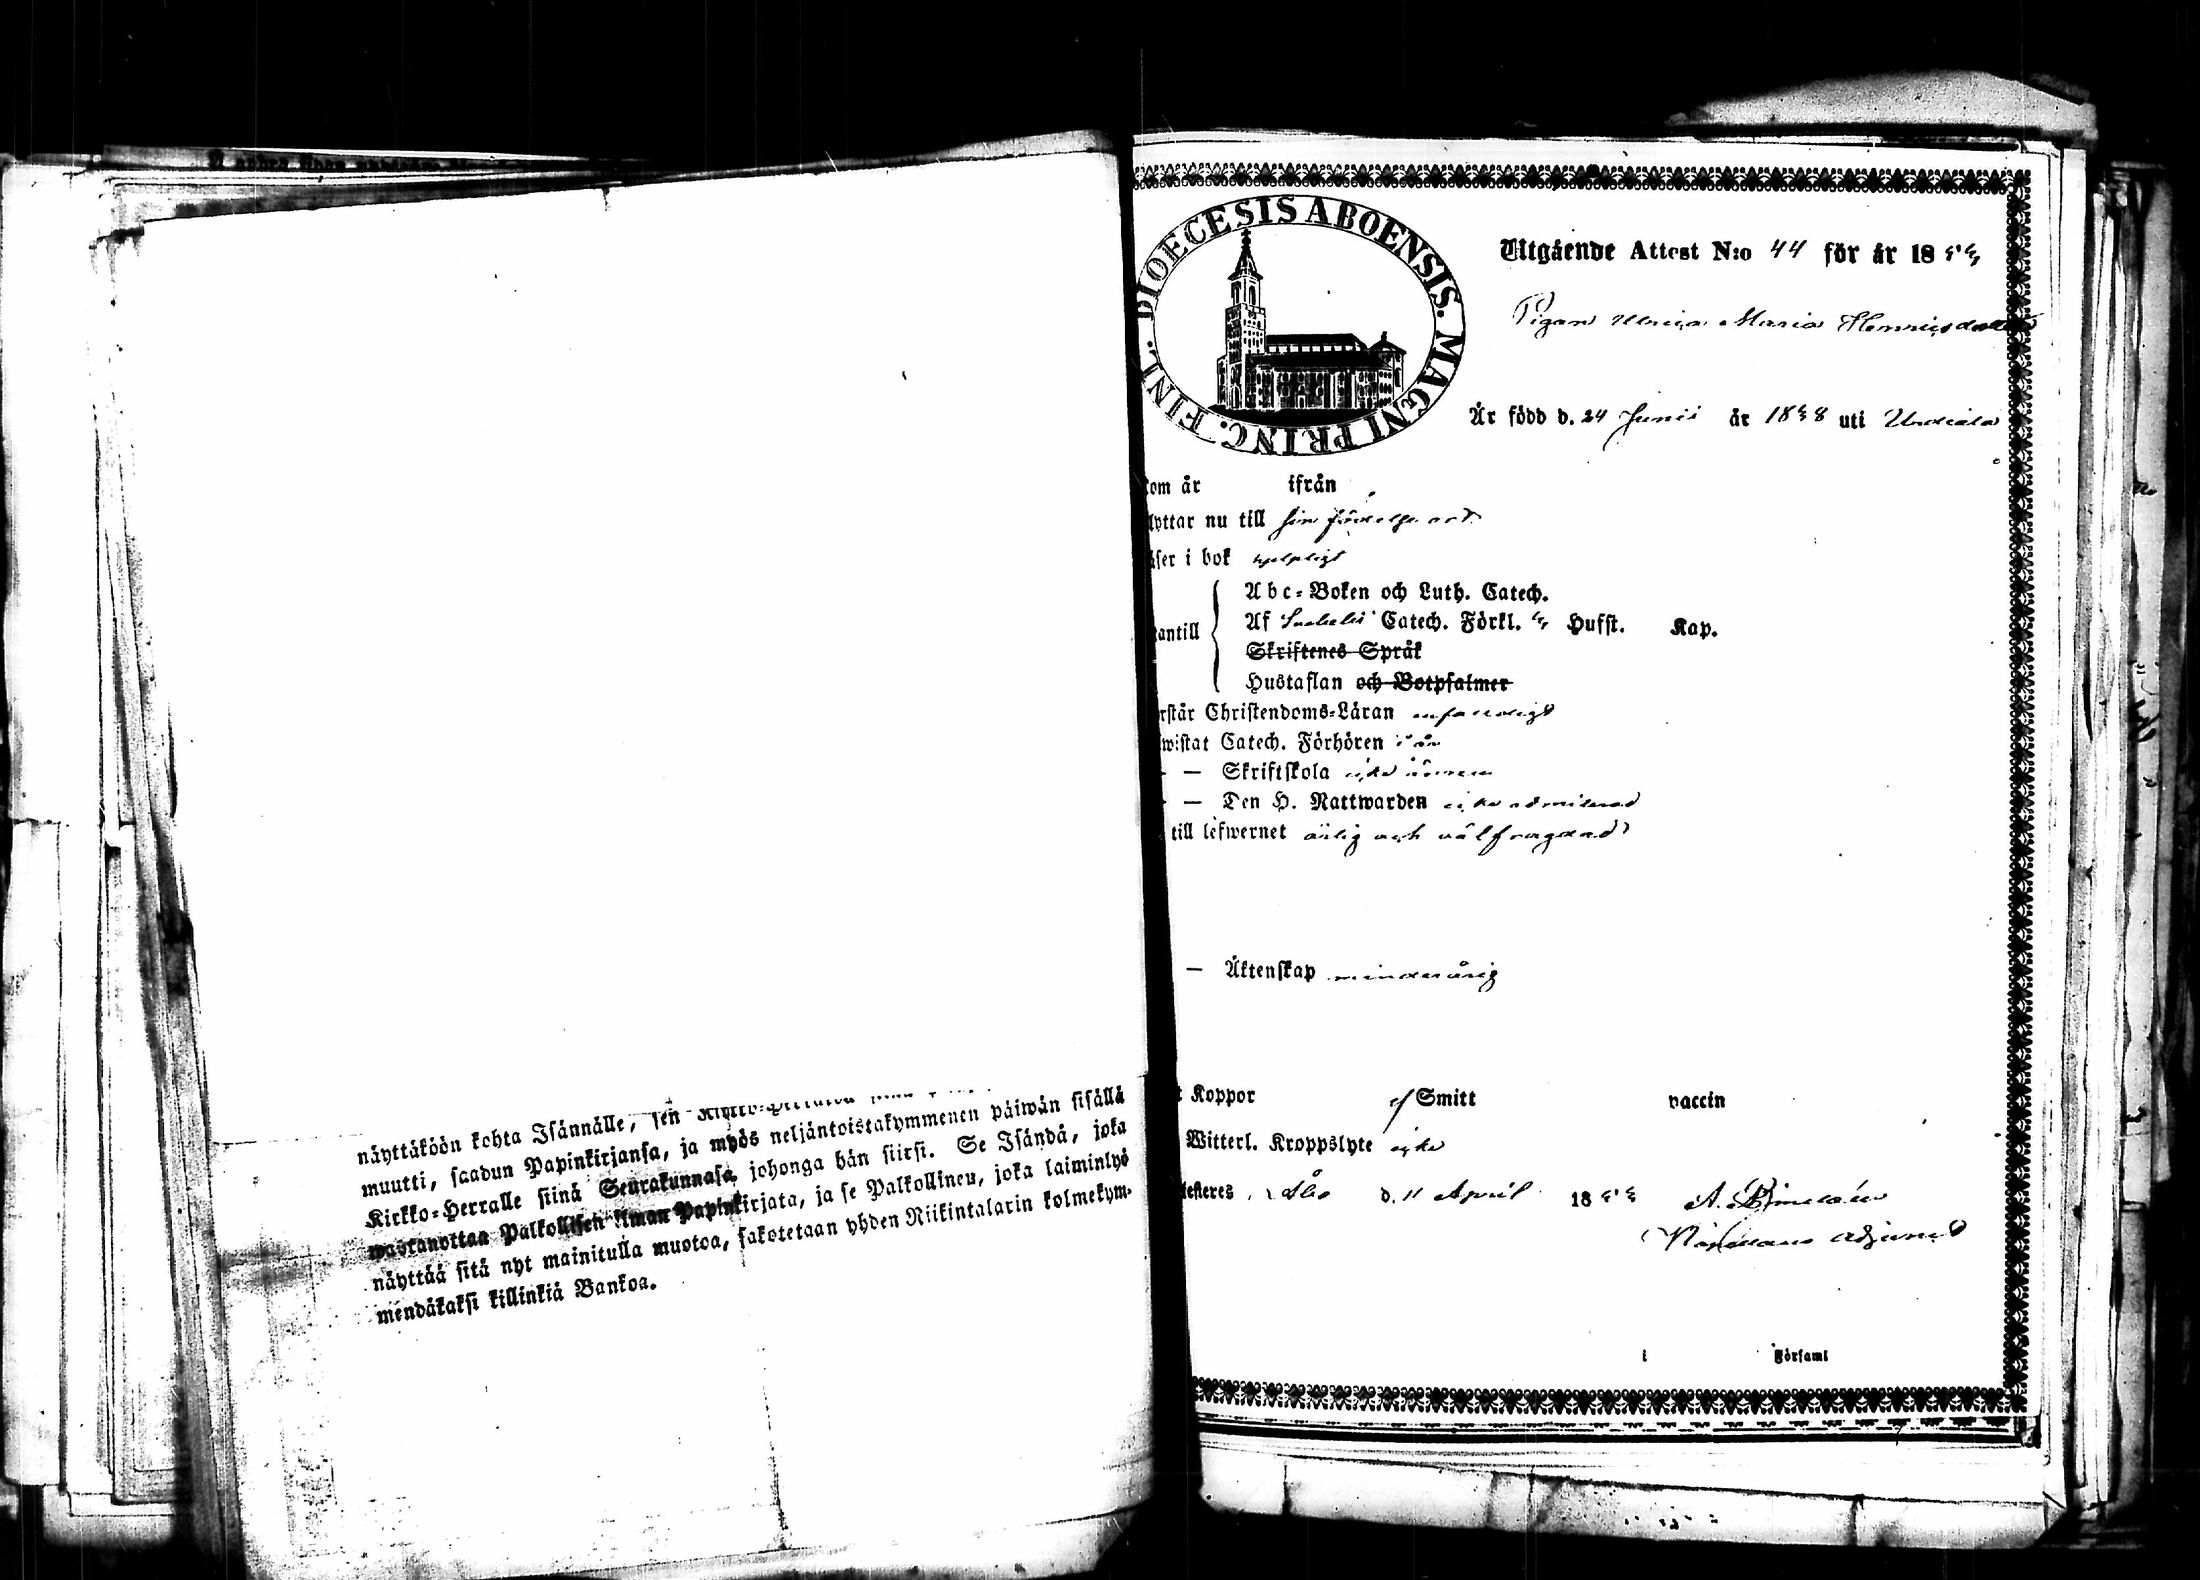 näyttäköön kohta Isännälle, sen
muutti, saadun Papinkirjansa, ja myös neljäntoistakymmenen päiwän sisällä
Kirkko-Herralle siinä Seurakunnasa, johonga hän siirsi. Se Isändä, joka
wastanottaa Palkollisen ilman Papinkirjata, ja se Palkollinen, joka laiminlyö
näyttää sitä nyt mainitulla muotoa, sakotetaan yhden Riikintalarin kolmekym-
mendäkaksi killinkiä Bankoa.
DIOECESIS ABOENSIS. MAGNI PRINC. FINL.
Utgående Attest N:o 44 för år 18
Pigan Ulrica Maria Henricsdotter
Är född d. 24 Junii år 1838 uti
kom år ifrån
lyttar nu till sin födelse ort
äser i bok hjelpligt
tantill
Abc-Boken och Luth. Catech.
Af Svebelii Catech. Förkl. Hufst. Kap.
Skriftenes Språk
Hustaflan och Botpsalmer
rstår Christendoms-Läran enfaldigt
wistat Catech. Förhören i år
— Skriftskola icke ännu
— Den H. Nattwarden icke admitterad
till lefwernet ärlig och välfrägdad
— Äktenskap minderårig
t Koppor Smitt vaccin
Witterl. Kroppslyte icke
testeres Åbo d. 11 April 18
adjunct
i Församl